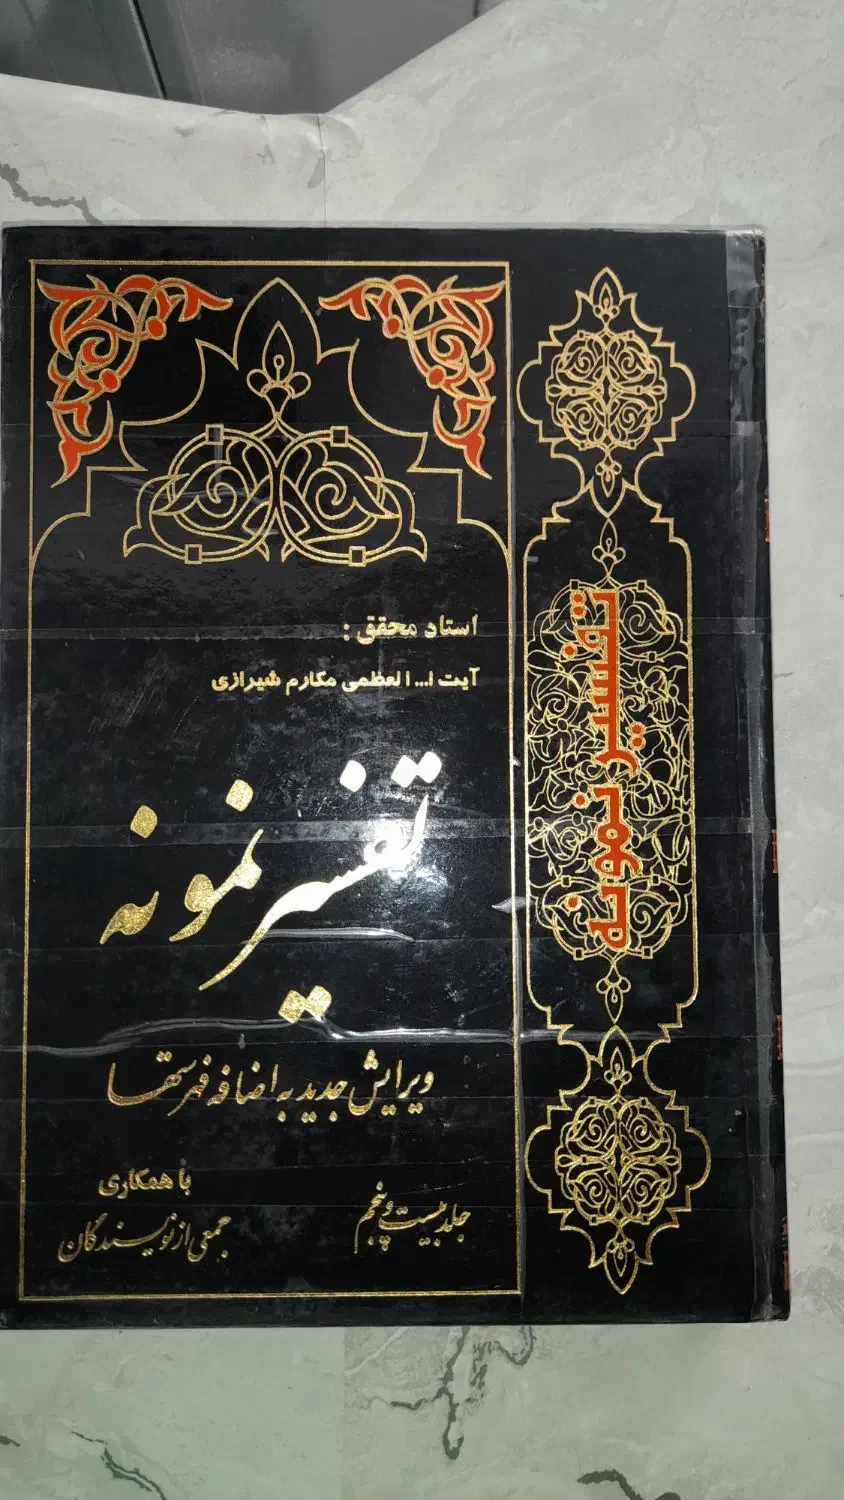 استاد محقق :
آیت ا... العظمی مکارم شیرازی
تفسیر نمونه
ویرایش جدید به اضافه فهرستها
جلد بیست و پنجم
با همکاری
جمعی از نویسندگان
تفسیر نمونه